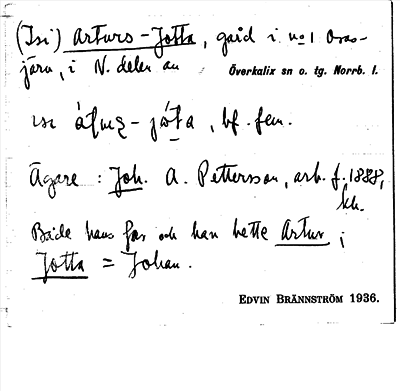 (Isi) Arturs-Jotta, gård i no 1 Oras-
järv, i N. delen av Överkalix sn o. tg. Norrb. l.
jota, bf. fem.
Ägare: Joh. A. Pettersson, arb. f. 1888,
Både hans far och han hette Artur;
Jotta = Johan.
EDVIN BRÄNNSTRÖM 1936.